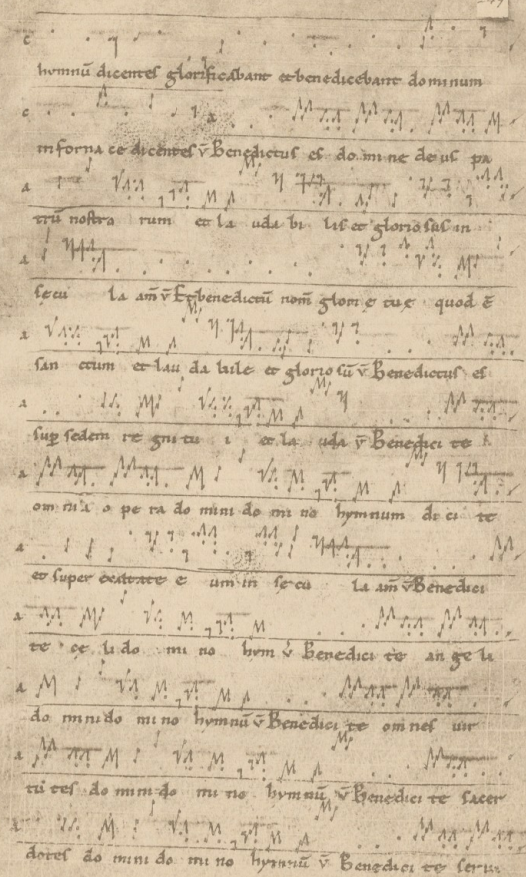 hymnū dicentes glorificabant et benedicebant dominum
in forna ce dicentes v̄ Benedictus es do mi ne de us pa
trū nostro rum et la uda bi lis et glorio sus in
secu la am̄ v̄ Et benedictū nom̄ glori e tue quod ē
san ctum et lau da bile et glorio sū v̄ Benedictus es
sup sedem re gni tu i et la uda v̄ Benedici te
om ni a o pe ra do mini do mi no hymnum di ci te
et super exaltate e um in secu la am̄ v̄ Benedici
te ce li do mi no hym v̄ Benedici te an ge li
do mi ni do mi no hymnū v̄ Benedici te om nes uir
tu tes do mi ni do mi no hymnū v̄ Benedici te sacer
dotes do mi ni do mi no hymnū v̄ Benedici te serui